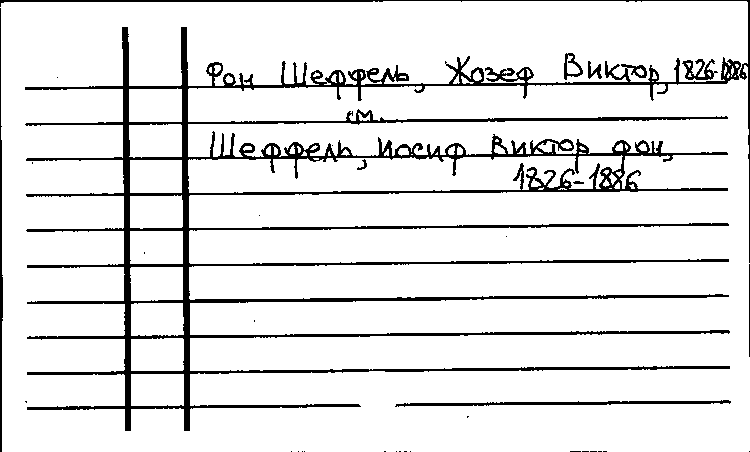 Фон Шеффель, Жозеф Виктор, 1826-1886
см.
Шеффель, Иосиф Виктор фон,
1826-1886